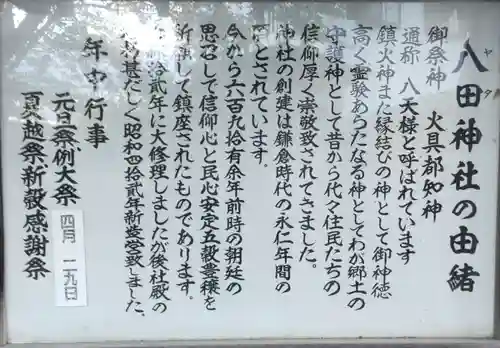 八田神社の由緒
ヤタ
御祭神 火具都知神
通称 八天様と呼ばれています
鎮火神また縁結びの神として御神徳
高く霊験あらたなる神としてわが郷土の
守護神として昔から代々住民たちの
信仰厚く崇敬致されてきました。
神社の創建は鎌倉時代の永仁年間の
とされています。
今から六百九拾有余年前時の朝廷の
思召しで信仰心と民心安定五穀豊穣を
祈願して鎮座されたものであります。
拾弐年に大修理しましたが後社殿の
甚だしく昭和四拾弐年新築致しました。
年中行事
元旦祭例大祭 四月二九日
夏越祭新穀感謝祭